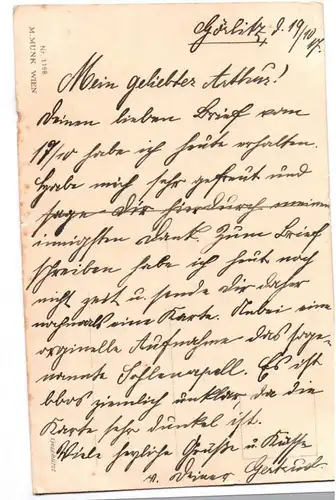 Görlitz, d. 19/10 17.
Mein geliebter Arthur!
Deinen lieben Brief vom
17/10 habe ich heute erhalten.
Habe mich sehr gefreut und
sage Dir hierdurch meinen
innigsten Dank. Zum Brief
schreiben habe ich heut noch
nicht zeit u. sende Dir daher
nochmals eine Karte. Anbei eine
orginelle Aufnahme das soge-
nannte Sohlenapell. Es ist
blos ziemlich unklar, da die
Karte sehr dunkel ist.
Viele herzliche Grüße u. Küsse
v. Deiner Gertrud.
Nr. 1198
M. MUNK WIEN
Geschützt